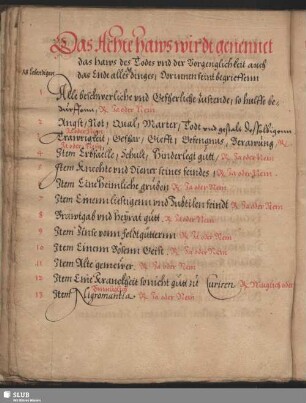 Das Achte haws wirdt genennet
das haws des Todes vnd der Vergenglichkeit auch
das Endt alles dinges, Dorinnen seint begrieffenn
1 Alle beschwerliche vnd Gefherliche zustende, so hulffe be-
dürffenn, R. Ja oder Nein
2 Angst, Not, Qual, Marter, Todt vnd gestalt desselbigenn
R. Ja oder Nein
3 Trawrigkeit, Gefhar, Giefft, Gefengnus, Berawung, R.
Ja oder Nein
4 Item Erbfälle, Schult, Hinderlegt gutt, R. Ja oder Nein
5 Item Knechte vnd Diener seines feindes, R. Ja oder Nein
6 Item Ein heimliche gruben R. Ja oder Nein
7 Item Einenn liestigenn vnd Subtilen feindt R. Ja oder Nein
8 Brawtgab vnd heyrat gutt, R. Ja oder Nein
9 Item Zinse vonn feldgütternn R. Ja oder Nein
10 Item Einenn Bösenn Geist, R. Ja oder Nein
11 Item Alte gemeiner, R. Ja oder Nein
12 Item Eine Kranckheit so nicht gutt zu Curiren, R. Muglich oder
Vnmuglich
13 Item Nigromantia, R. Ja oder Nein
SLUB